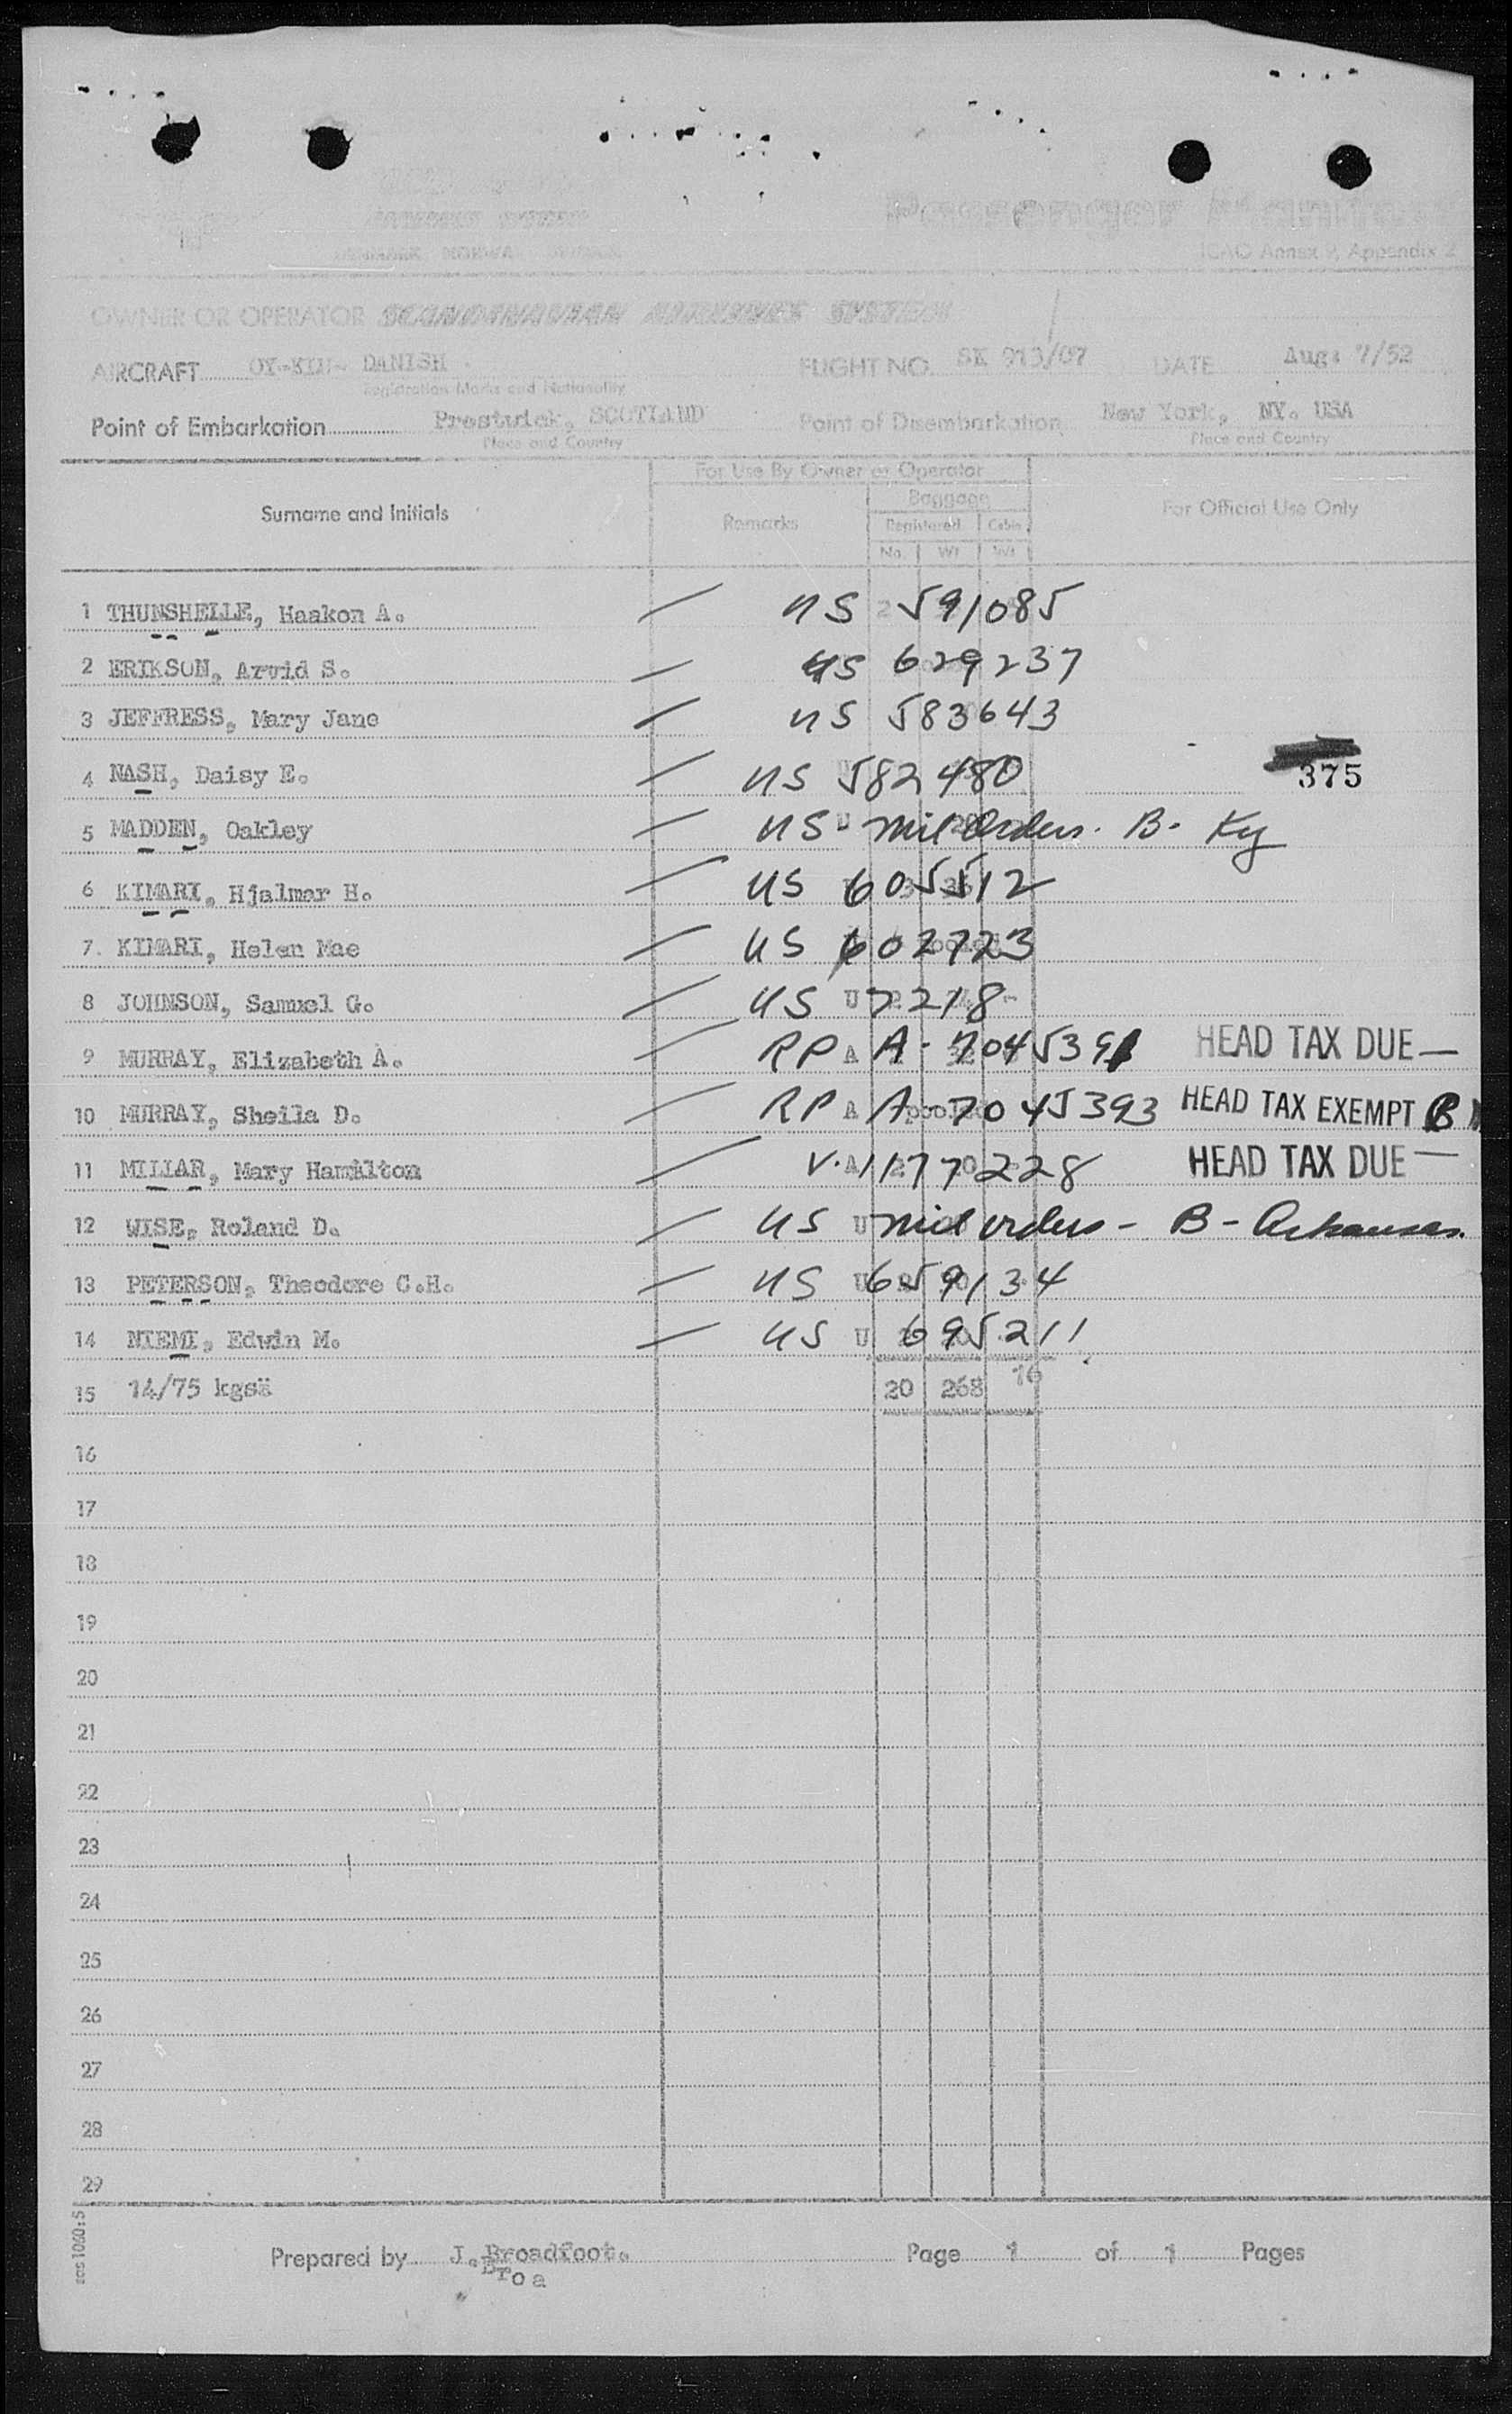 AIRLINES SYSTEM
DENMARK NORWAY SWEDEN
Passenger Manifest
ICAO Annex 9, Appendix 2
OWNER OR OPERATOR SCANDINAVIAN AIRLINES SYSTEM
AIRCRAFT DANISH FLIGHT NO. SK 913/07 DATE Aug: 7/52
Registration Marks and Nationality
Point of Embarkation Prestwick, SCOTLAND Point of Disembarkation New York, NY. USA
Place and Country Place and Country
For Use By Owner or Operator
Surname and Initials Remarks Baggage For Official Use Only
Registered Cabin
No. Wt Wt
1 THUNSHELLE, Haakon A. US 591085
2 ERIKSON, Arvid S. US 629237
3 JEFFRESS, Mary Jane US 583643
4 NASH, Daisy E. US 582480 375
5 MADDEN, Oakley US U mil Orders. B. Ky
6 KIMARI, Hjalmar H. US 605512
7. KIMARI, Helen Mae US 602723
8 JOHNSON, Samuel G. US U 7218
9 MURRAY, Elizabeth A. RP A A-7045391 HEAD TAX DUE —
10 MURRAY, Sheila D. RP A A-7045393 HEAD TAX EXEMPT B
11 MILLAR, Mary Hamilton V. A 1177228 HEAD TAX DUE —
12 WISE, Roland D. US U mil orders - B - Arkansas.
13 PETERSON, Theodore C.H. US U 659134
14 NIEMI, Edwin M. US U 695211
15 14/75 kgsä 20 268 16
16
17
18
19
20
21
22
23
24
25
26
27
28
29
Prepared by J. Broadfoot. Page 1 of 1 Pages
Broa